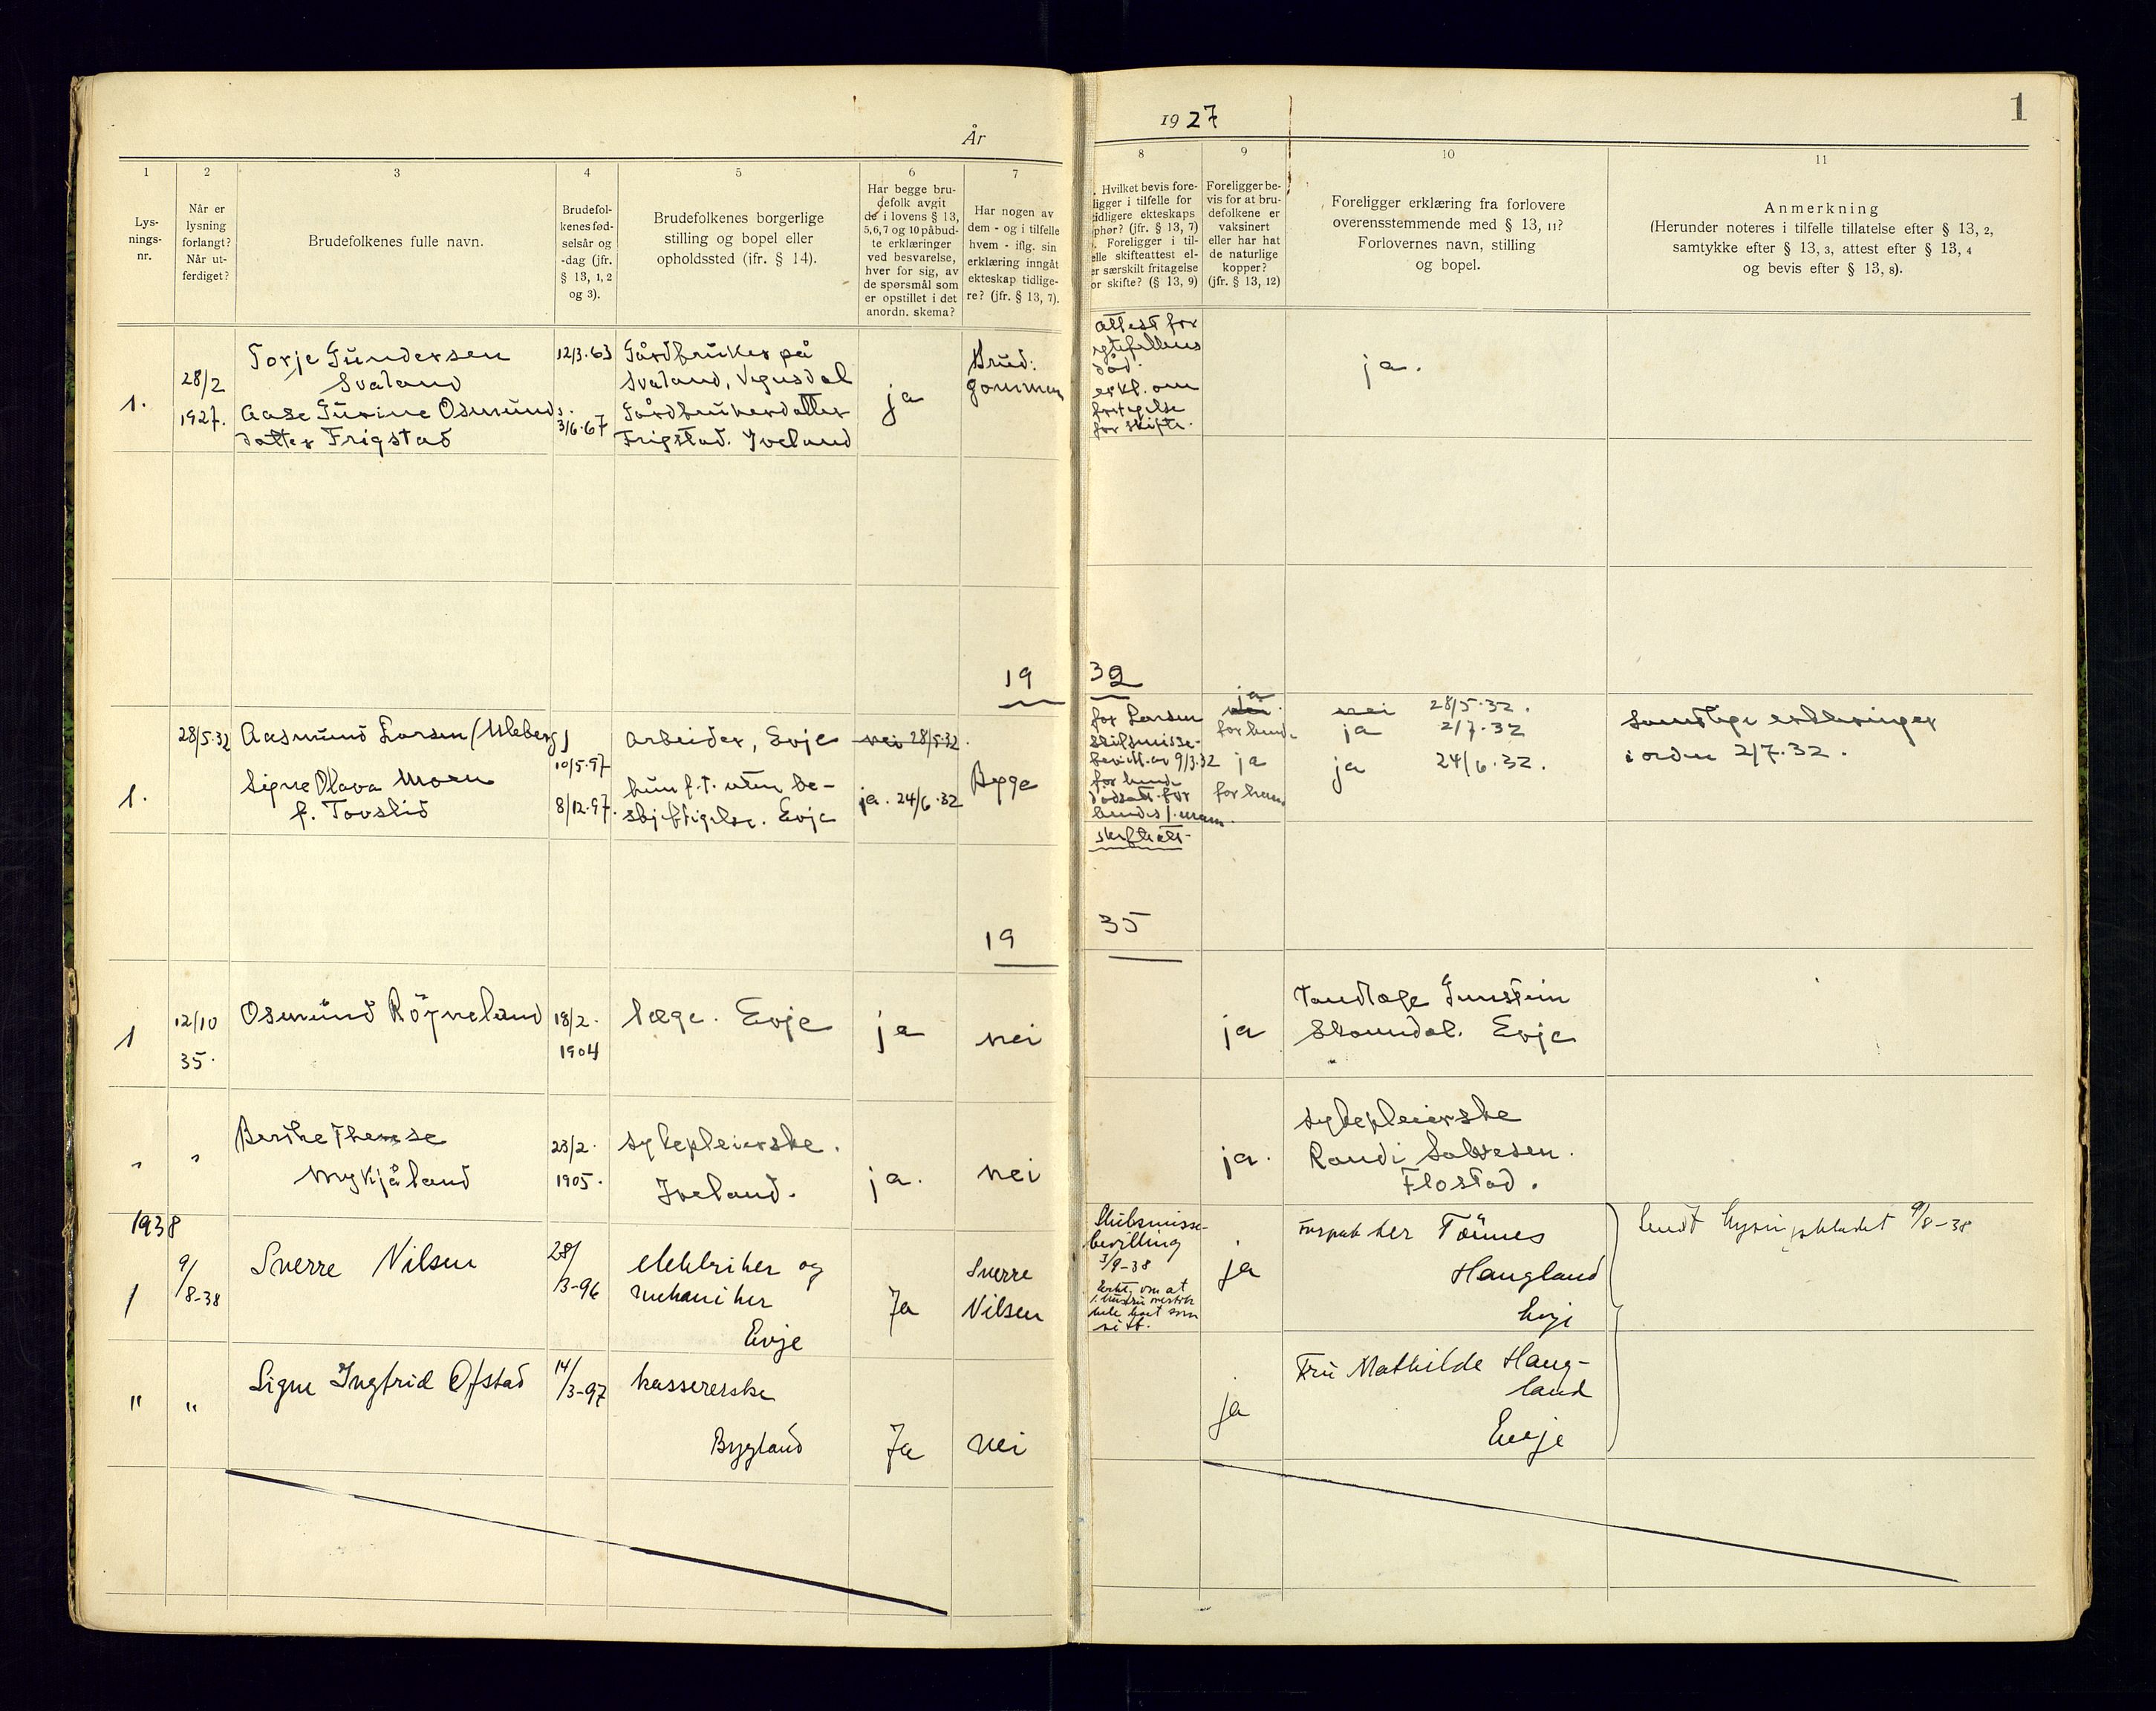 År
19 27
1
1
2
3
4
5
6
7
8
9
10
11
Lys-
nings-
nr.
Når er
lysning
forlangt?
Når ut-
ferdiget?
Brudefolkenes fulle navn.
Brudefol-
kenes fød-
selsår og
-dag (jfr.
§ 13, 1, 2
og 3).
Brudefolkenes borgerlige
stilling og bopel eller
opholdssted (ifr. § 14).
Har begge bru-
defolk avgit
de i lovens § 13,
5,6,7 og 10 påbud-
te erklæringer
ved besvarelse,
hver for sig, av
de spørsmål som
er opstillet i det
anordn. skema?
Har nogen av
dem - og i tilfelle
hvem - iflg. sin
erklæring inngåt
ekteskap tidlige-
re? (jfr. § 13, 7).
. Hvilket bevis fore-
ligger i tilfelle for
tidligere ekteskaps
ophør? (jfr. § 13, 7)
. Foreligger i til-
elle skifteattest el-
er særskilt fritagelse
or skifte? (§ 13, 9)
Foreligger be-
vis for at bru-
defolkene er
vaksinert
eller har hat
de naturlige
kopper?
(jfr. § 13, 12)
Foreligger erklæring fra forlovere
overensstemmende med § 13, 11?
Forlovernes navn, stilling
og bopel.
Anmerkning
(Herunder noteres i tilfelle tillatelse efter § 13, 2,
samtykke efter § 13, 3, attest efter § 13, 4
og bevis efter § 13, 8).
1.
28/2
1927.
Torje Gundersen
Svaland
Aase Gurine Osmunds.
datter Frigstad
12/3.63
3/6.67
Gårdbruker på
Svaland, Vegusdal
Gårdbrukerdatter
Frigstad. Iveland
ja
Brud:
gommen
attest for
egtefellens
død.
erkl. om
fritagelse
for skifte.
ja.
19
32
1.
28/5.32
Aasmund Larsen (Uleberg)
Signe Olava Moen
f. Tovslid
10/5.97
8/12.97.
arbeider, Evje
hun f.t. uten be-
skjeftigelse. Evje
nei 28/5.32.
ja. 24/6.32
Begge
for Larsen
skilsmisse-
bevill. av 9/3.32
for hende
dødsatt. for
hendes f. mann.
skifteatt.
ja
nei.
for hende
ja
for ham
nei 28/5.32.
ja 2/7.32
ja 24/6.32.
Samtlige erklæringer
i orden 2/7.32.
19
35
1
12/10
35.
Osmund Röyneland
18/2.
1904
læge. Evje
ja
nei
ja
Tandlæge Gunstein
Skomdal. Evje
"
"
Berthe Therese
Mykjåland
23/2.
1905.
sykepleierske.
Iveland.
ja.
nei
ja.
sykepleierske
Randi Salvesen.
Flostad.
1938
1
9/8-38
Sverre Nilsen
28/3-96
elektriker og
mekaniker
Evje
Ja
Sverre
Nilsen
Skilsmisse-
bevilling
3/9-38
ja
Tönnes
Haugland
Evje
Sendt lysningsbladet 9/8-38
"
"
Signe Ingfrid Ofstad
14/3-97
kassererske
Bygland
Ja
nei
ja
Fru Mathilde Haug-
land
Evje